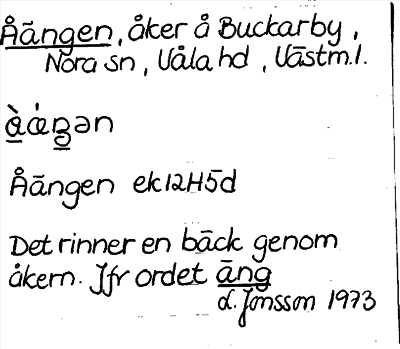 Åängen, åker å Buckarby,
Nora sn, Våla hd, Västm.l.
Åängen ek12H5d
Det rinner en bäck genom
åkern. Jfr ordet äng
L. Jonsson 1973